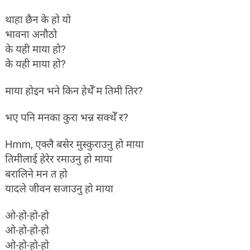 थाहा छैन के हो यो
भावना अनौठो
के यही माया हो?
के यही माया हो?
माया होइन भने किन हेर्थेँ म तिमी तिर?
भए पनि मनका कुरा भन्न सक्थेँ र?
Hmm, एक्लै बसेर मुस्कुराउनु हो माया
तिमीलाई हेरेर रमाउनु हो माया
बरालिने मन त हो
यादले जीवन सजाउनु हो माया
ओ-हो-हो-हो
ओ-हो-हो-हो
ओ-हो-हो-हो